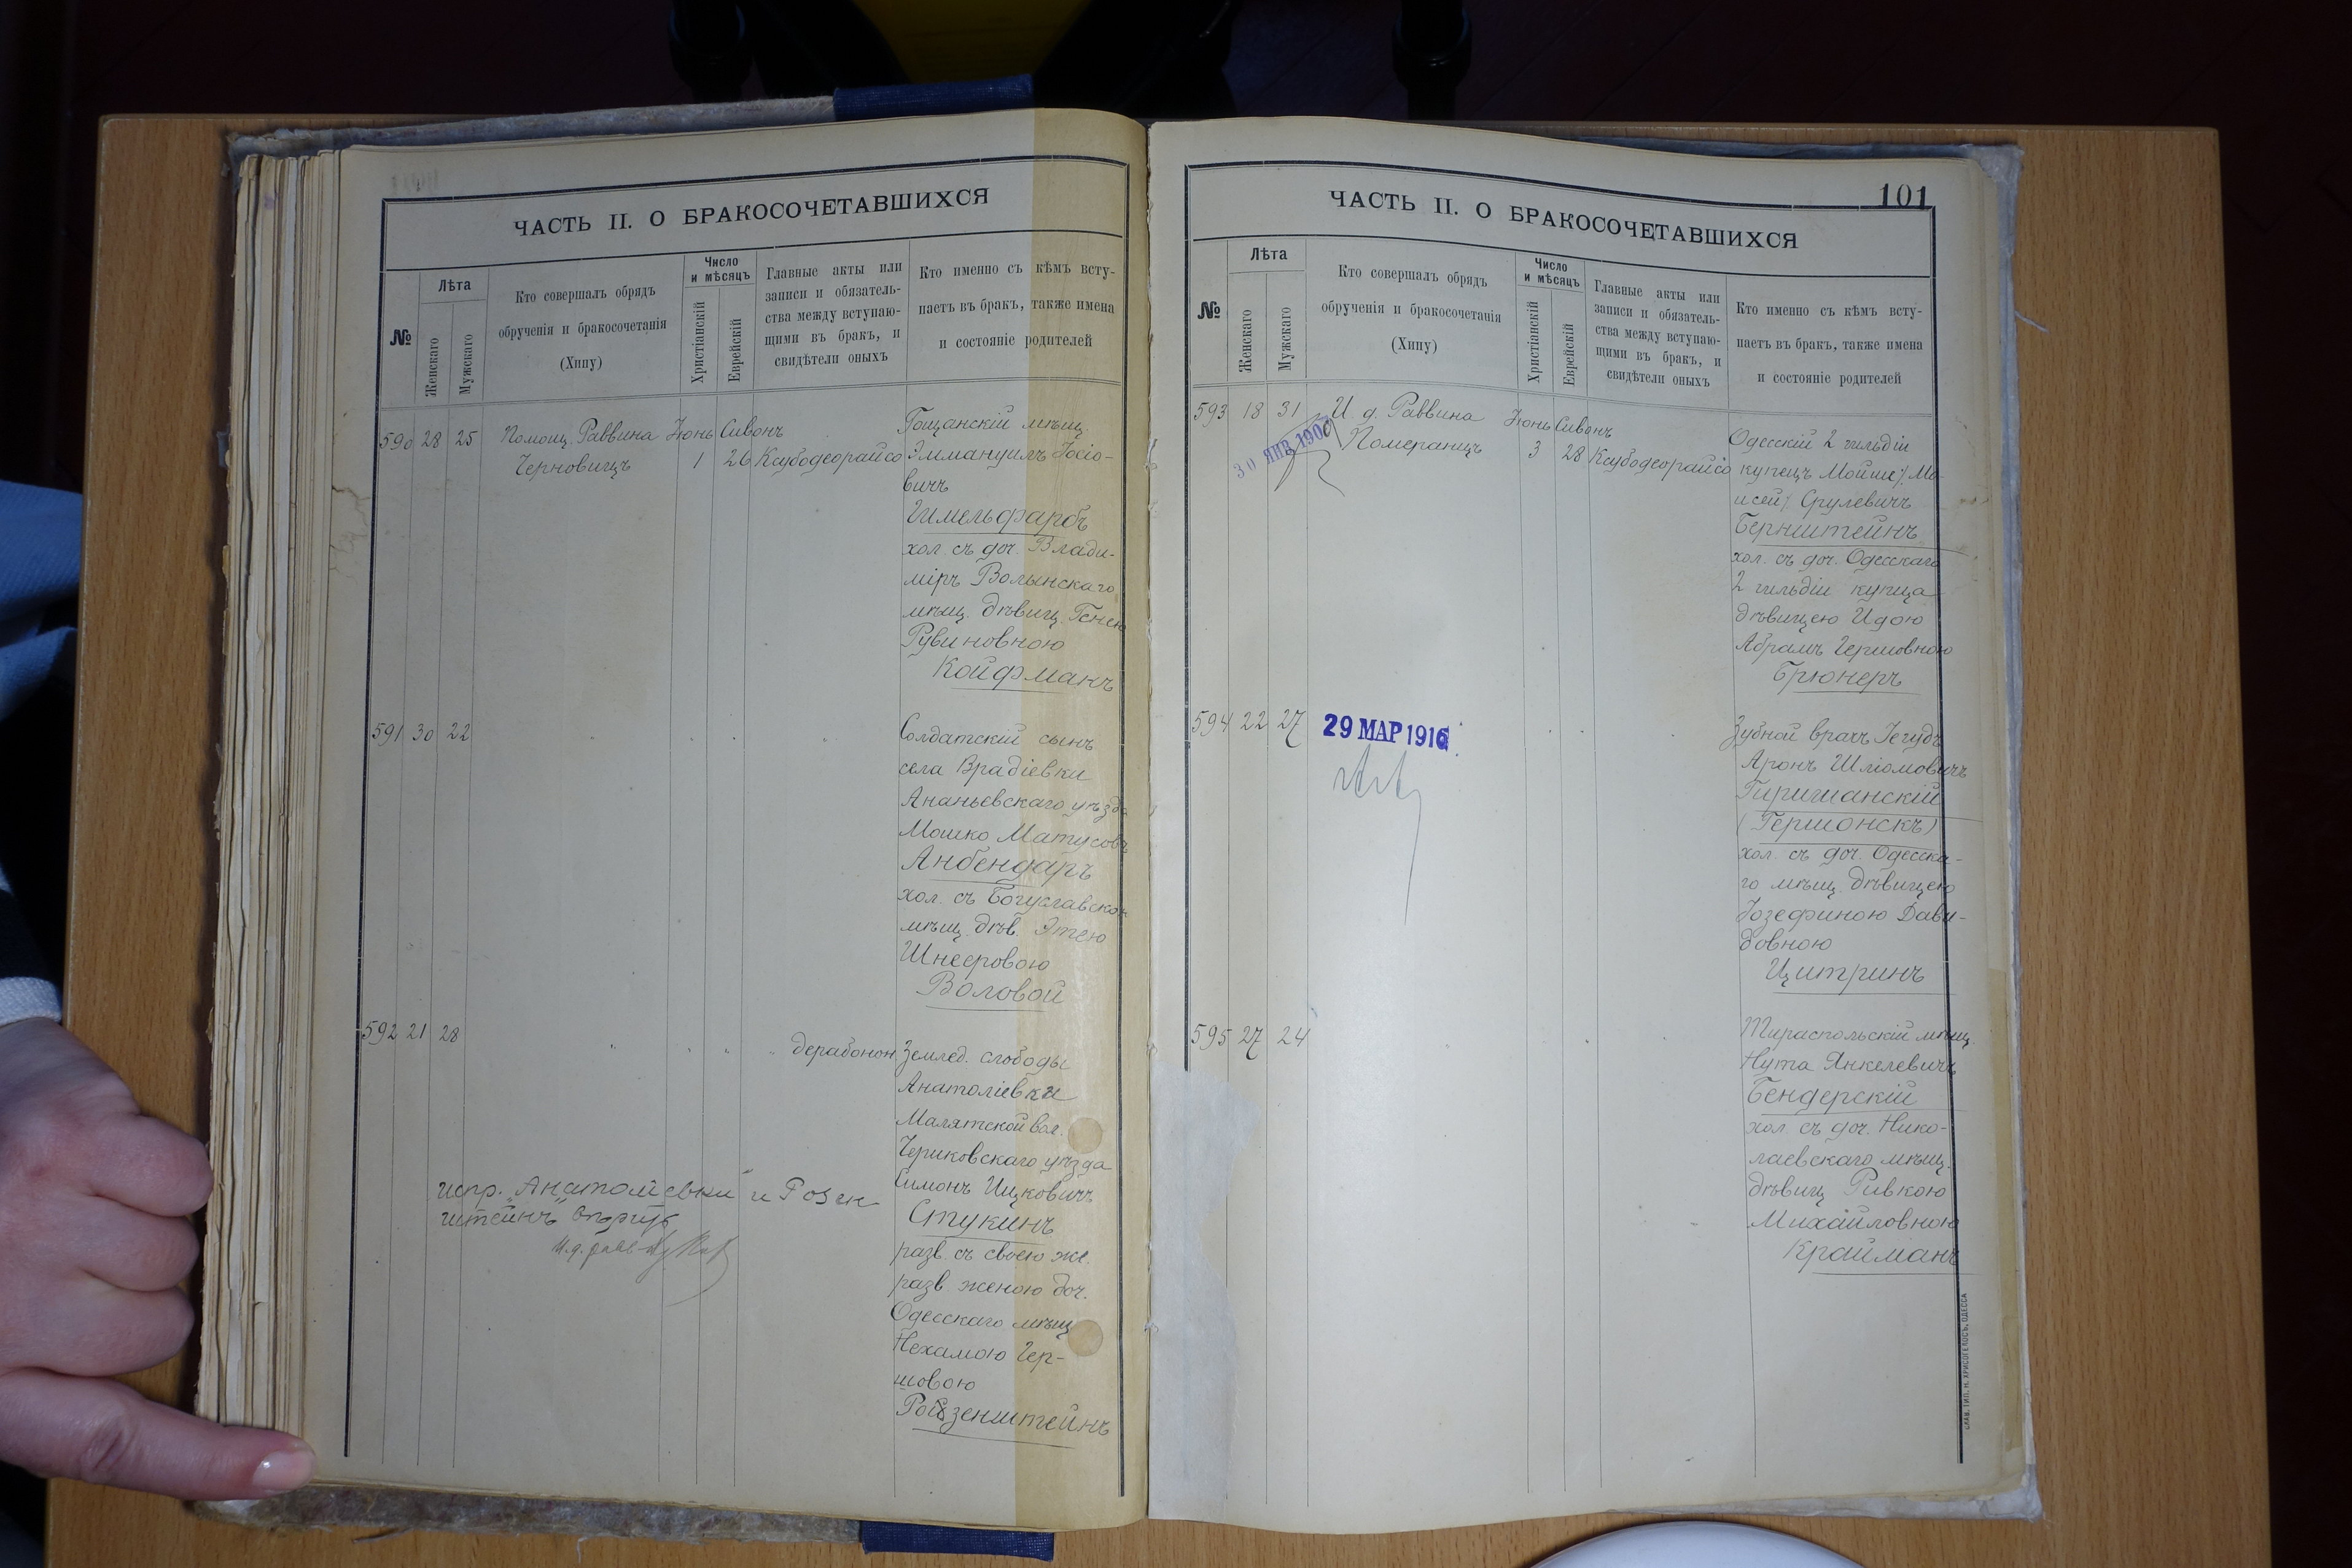 ЧАСТЬ II. О БРАКОСОЧЕТАВШИХСЯ
№
Лѣта
Женскаго
Мужскаго
Кто совершалъ обрядъ
обрученія и бракосочетанія
(Хипу)
Число
и мѣсяцъ
Христіанскій
Еврейскій
Главные акты или
записи и обязатель-
ства между вступаю-
щими въ бракъ, и
свидѣтели оныхъ
Кто именно съ кѣмъ всту-
паетъ въ бракъ, также имена
и состояніе родителей
590 28 25
Помощ. Раввина
Черновицъ
Іюнь Сивонъ
1 26 Ксубодеорайсо
Гощанскій мѣщ.
Эммануилъ Іосіо-
вичъ
Гимельфарбъ
хол. съ доч. Влади-
міръ Волынскаго
мѣщ. дѣвиц. Генею
Рувиновною
Койфманъ
591 30 22
Солдатскій сынъ
села Врадіевки
Ананьевскаго уѣзда
Мошко Матусовъ
Анбендаръ
хол. съ Богуславской
мѣщ. дѣв. Этею
Шнееровою
Воловой
592 21 28
дерабонон
Землед. слободы
Анатоліевки
Малятской вол.
Чериковскаго уѣзда
Симонъ Ицковичъ
Стукинъ
разв. съ своею же
разв. женою доч.
Одесскаго мѣщ
Нехамою Гер-
шовою
Розенштейнъ
испр. „Анатоліевки" и Розен
штейнъ" вѣрить
И.д. равв.
ЧАСТЬ II. О БРАКОСОЧЕТАВШИХСЯ
101
№
Лѣта
Женскаго
Мужскаго
Кто совершалъ обрядъ
обрученія и бракосочетанія
(Хипу)
Число
и мѣсяцъ
Христіанскій
Еврейскій
Главные акты или
записи и обязатель-
ства между вступаю-
щими въ бракъ, и
свидѣтели оныхъ
Кто именно съ кѣмъ всту-
паетъ въ бракъ, также имена
и состояніе родителей
593 18 31
И. д. Раввина
Померанцъ
30 ЯНВ 190
Іюнь Сивонъ
3 28 Ксубодеорайсо
Одесскій 2 гильдіи
купецъ Мойше /Мо-
исей/ Срулевичъ
Бернштейнъ
хол. съ доч. Одесскаго
2 гильдіи купца
дѣвицею Идою
Абрамъ Гершовною
Брюнеръ
594 22 27
29 МАР 1916
Зубной врачъ Іегуда
Аронъ Шліомовичъ
Гиришанскій
(Гершонскъ)
хол. съ доч. Одесска-
го мѣщ. дѣвицею
Іозефиною Дави-
довною
Цитринъ
595 27 24
Тираспольскій мѣщ.
Нута Янкелевичъ
Бендерскій
хол. съ доч. Нико-
лаевскаго мѣщ.
дѣвиц Ривкою
Михайловною
Крайманъ
СЛАВ. ТИП. Н. ХРИСОГЕЛОСЪ, ОДЕССА